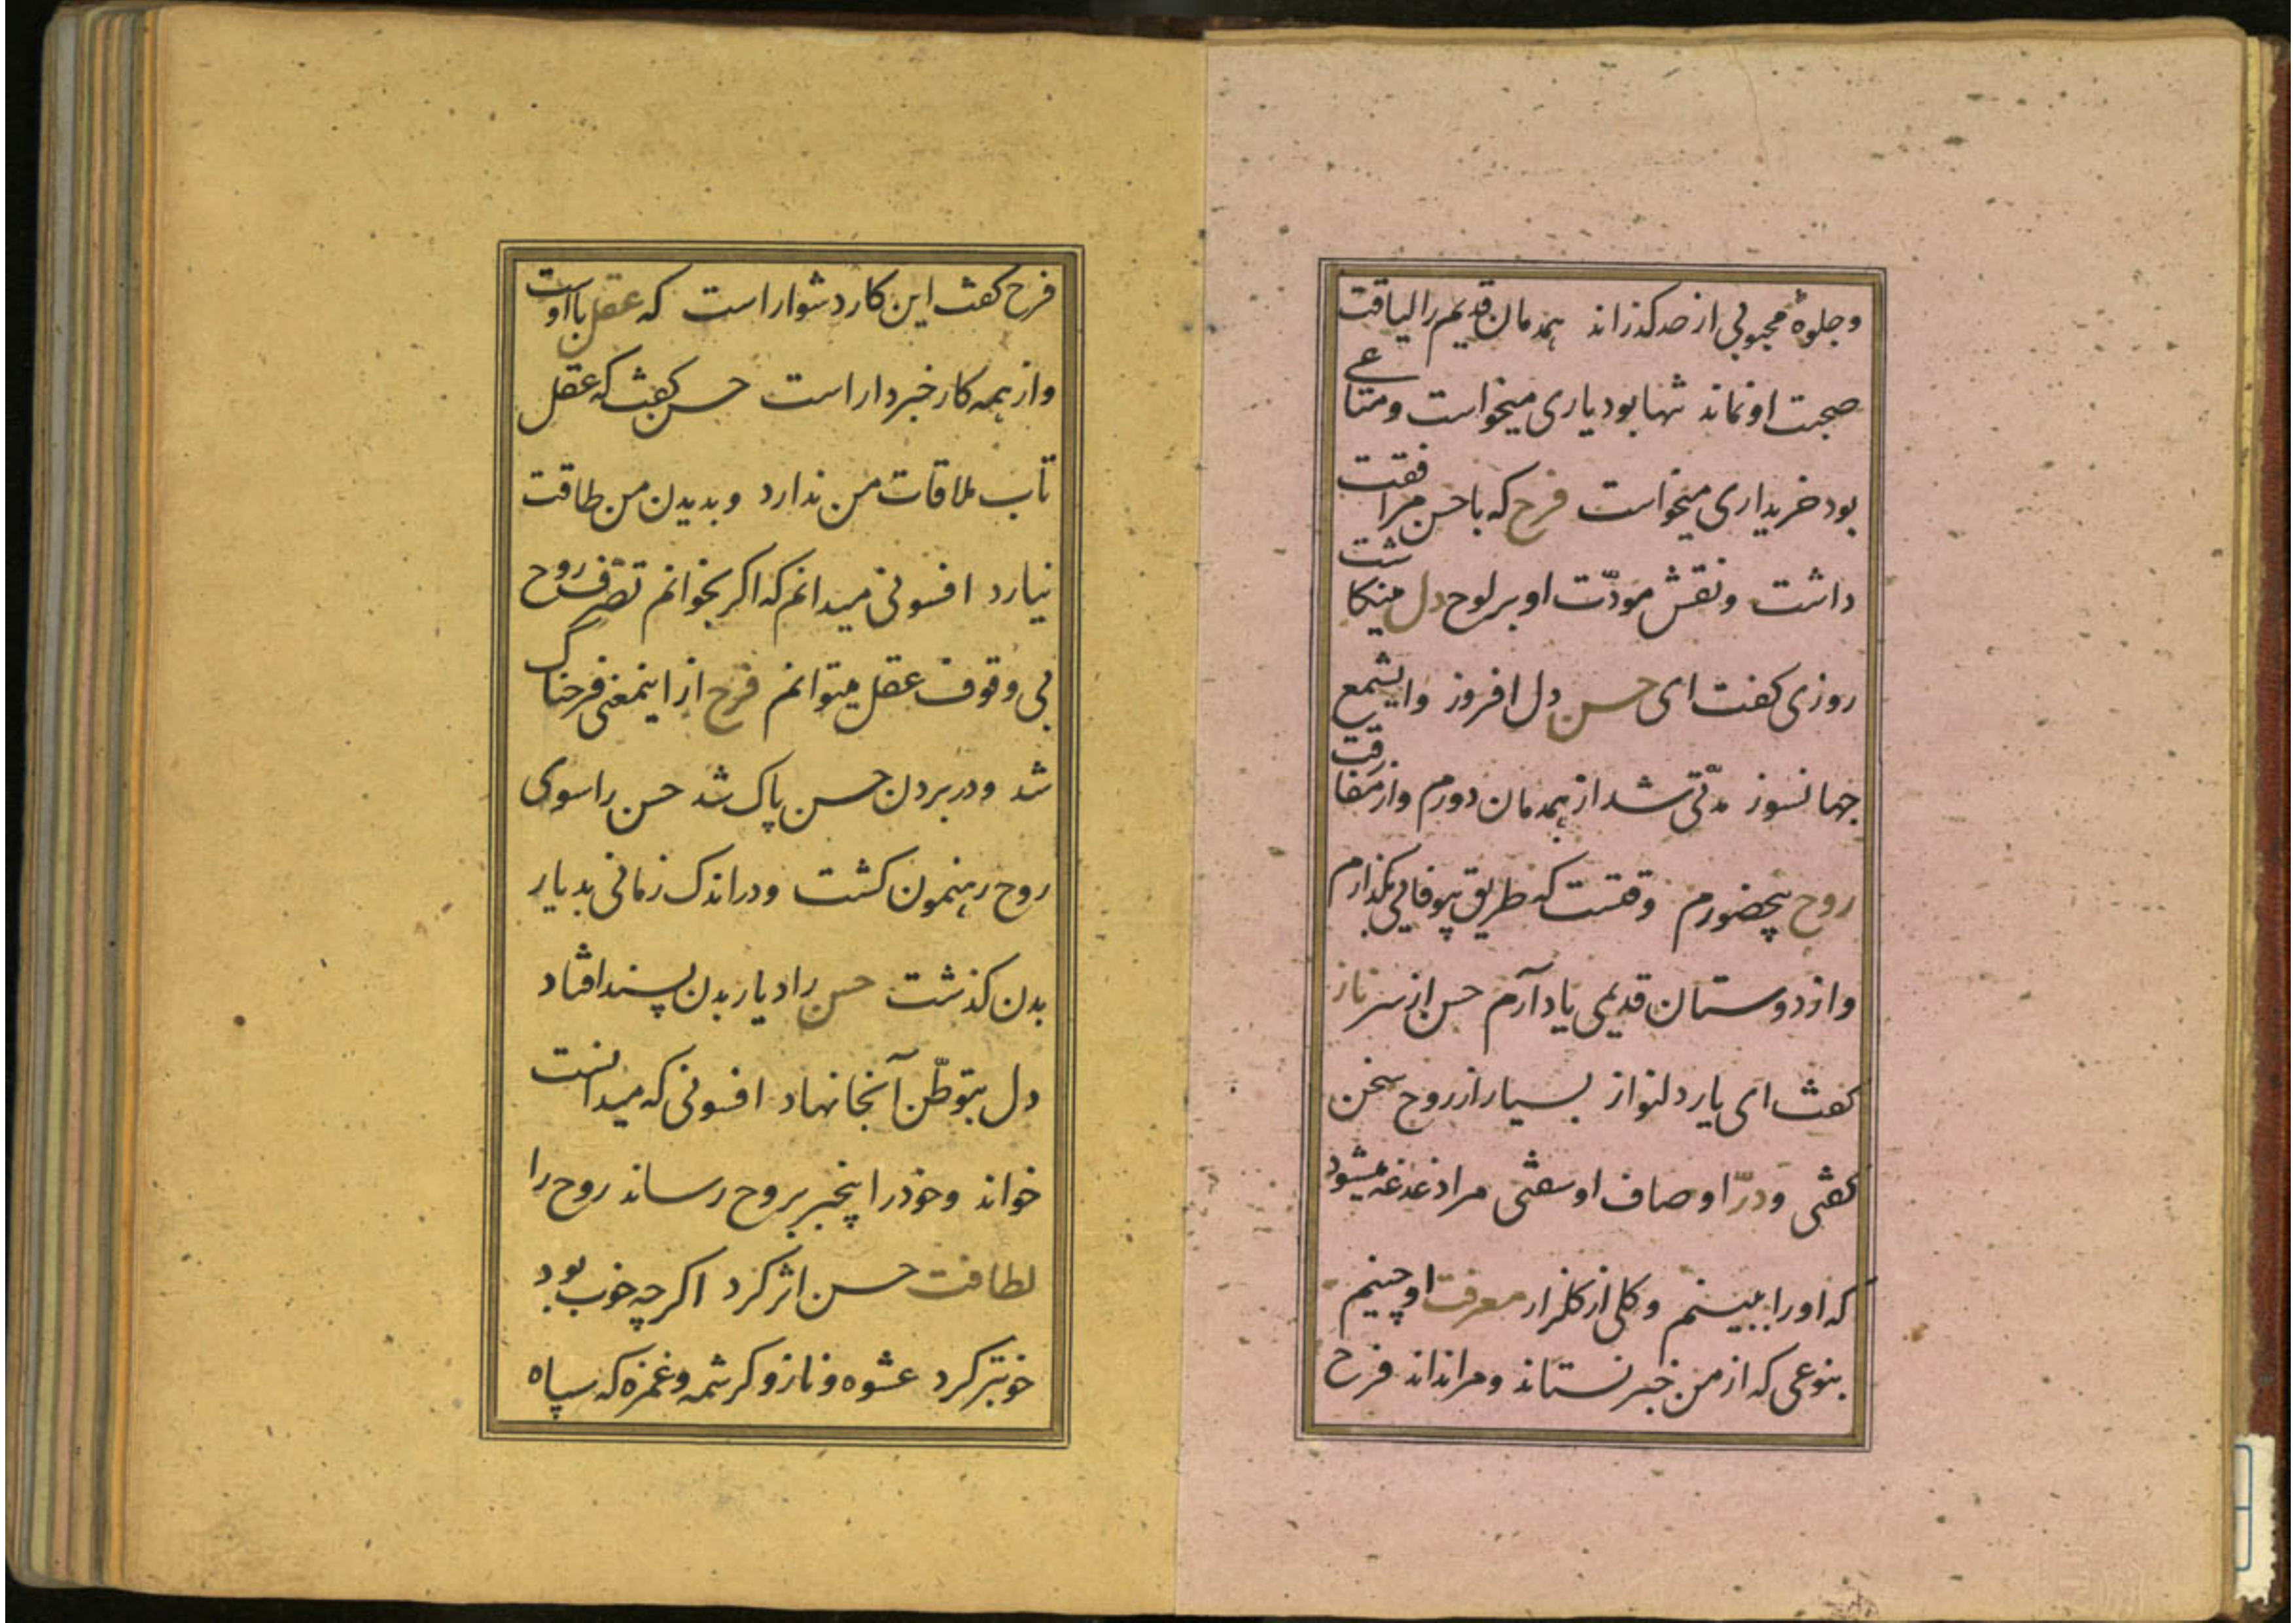 و جلوهٔ محبوبی از حد کذراند همدمان قدیم را لیاقت
صحبت او نماند تنها بود یاری میخواست و متاعی
بود خریداری میخواست فرح که با حسن مرافقت
داشت و نقش مودّت او بر لوح دل مینکاشت
روزی کفت ای حسن دل افروز و ای شمع
جهانسوز مدّتی شد از همدمان دورم و از مفارقت
روح بیحضورم وقتست که طریق بیوفایی بکذارم
و از دوستان قدیمی یاد آرم حسن از سر ناز
کفت ای یار دلنواز بسیار از روح سخن
کفتی و درّ اوصاف او سفتی مرا دغدغه میشود
که او را ببینم و کلی از کلزار معرفت او چینم
بنوعی که از من خبر نستاند و مرا نداند فرح
فرح کفت این کار دشوار است که عقل با اوست
و از همه کار خبردار است حسن کفت که عقل
تاب ملاقات من ندارد و بدیدن من طاقت
نیارد افسونی میدانم که اکر بخوانم تصرّف روح
بی وقوف عقل میتوانم فرح از اینمعنی فرحناک
شد و در بردن حسن پاک شد حسن را سوی
روح رهنمون کشت و در اندک زمانی بدیار
بدن کذشت حسن را دیار بدن پسند افتاد
دل بتوطّن آنجا نهاد افسونی که میدانست
خواند و خود را بیخبر بروح رساند روح را
لطافت حسن اثر کرد اکرچه خوب بود
خوبتر کرد عشوه و ناز و کرشمه و غمزه که سپاه